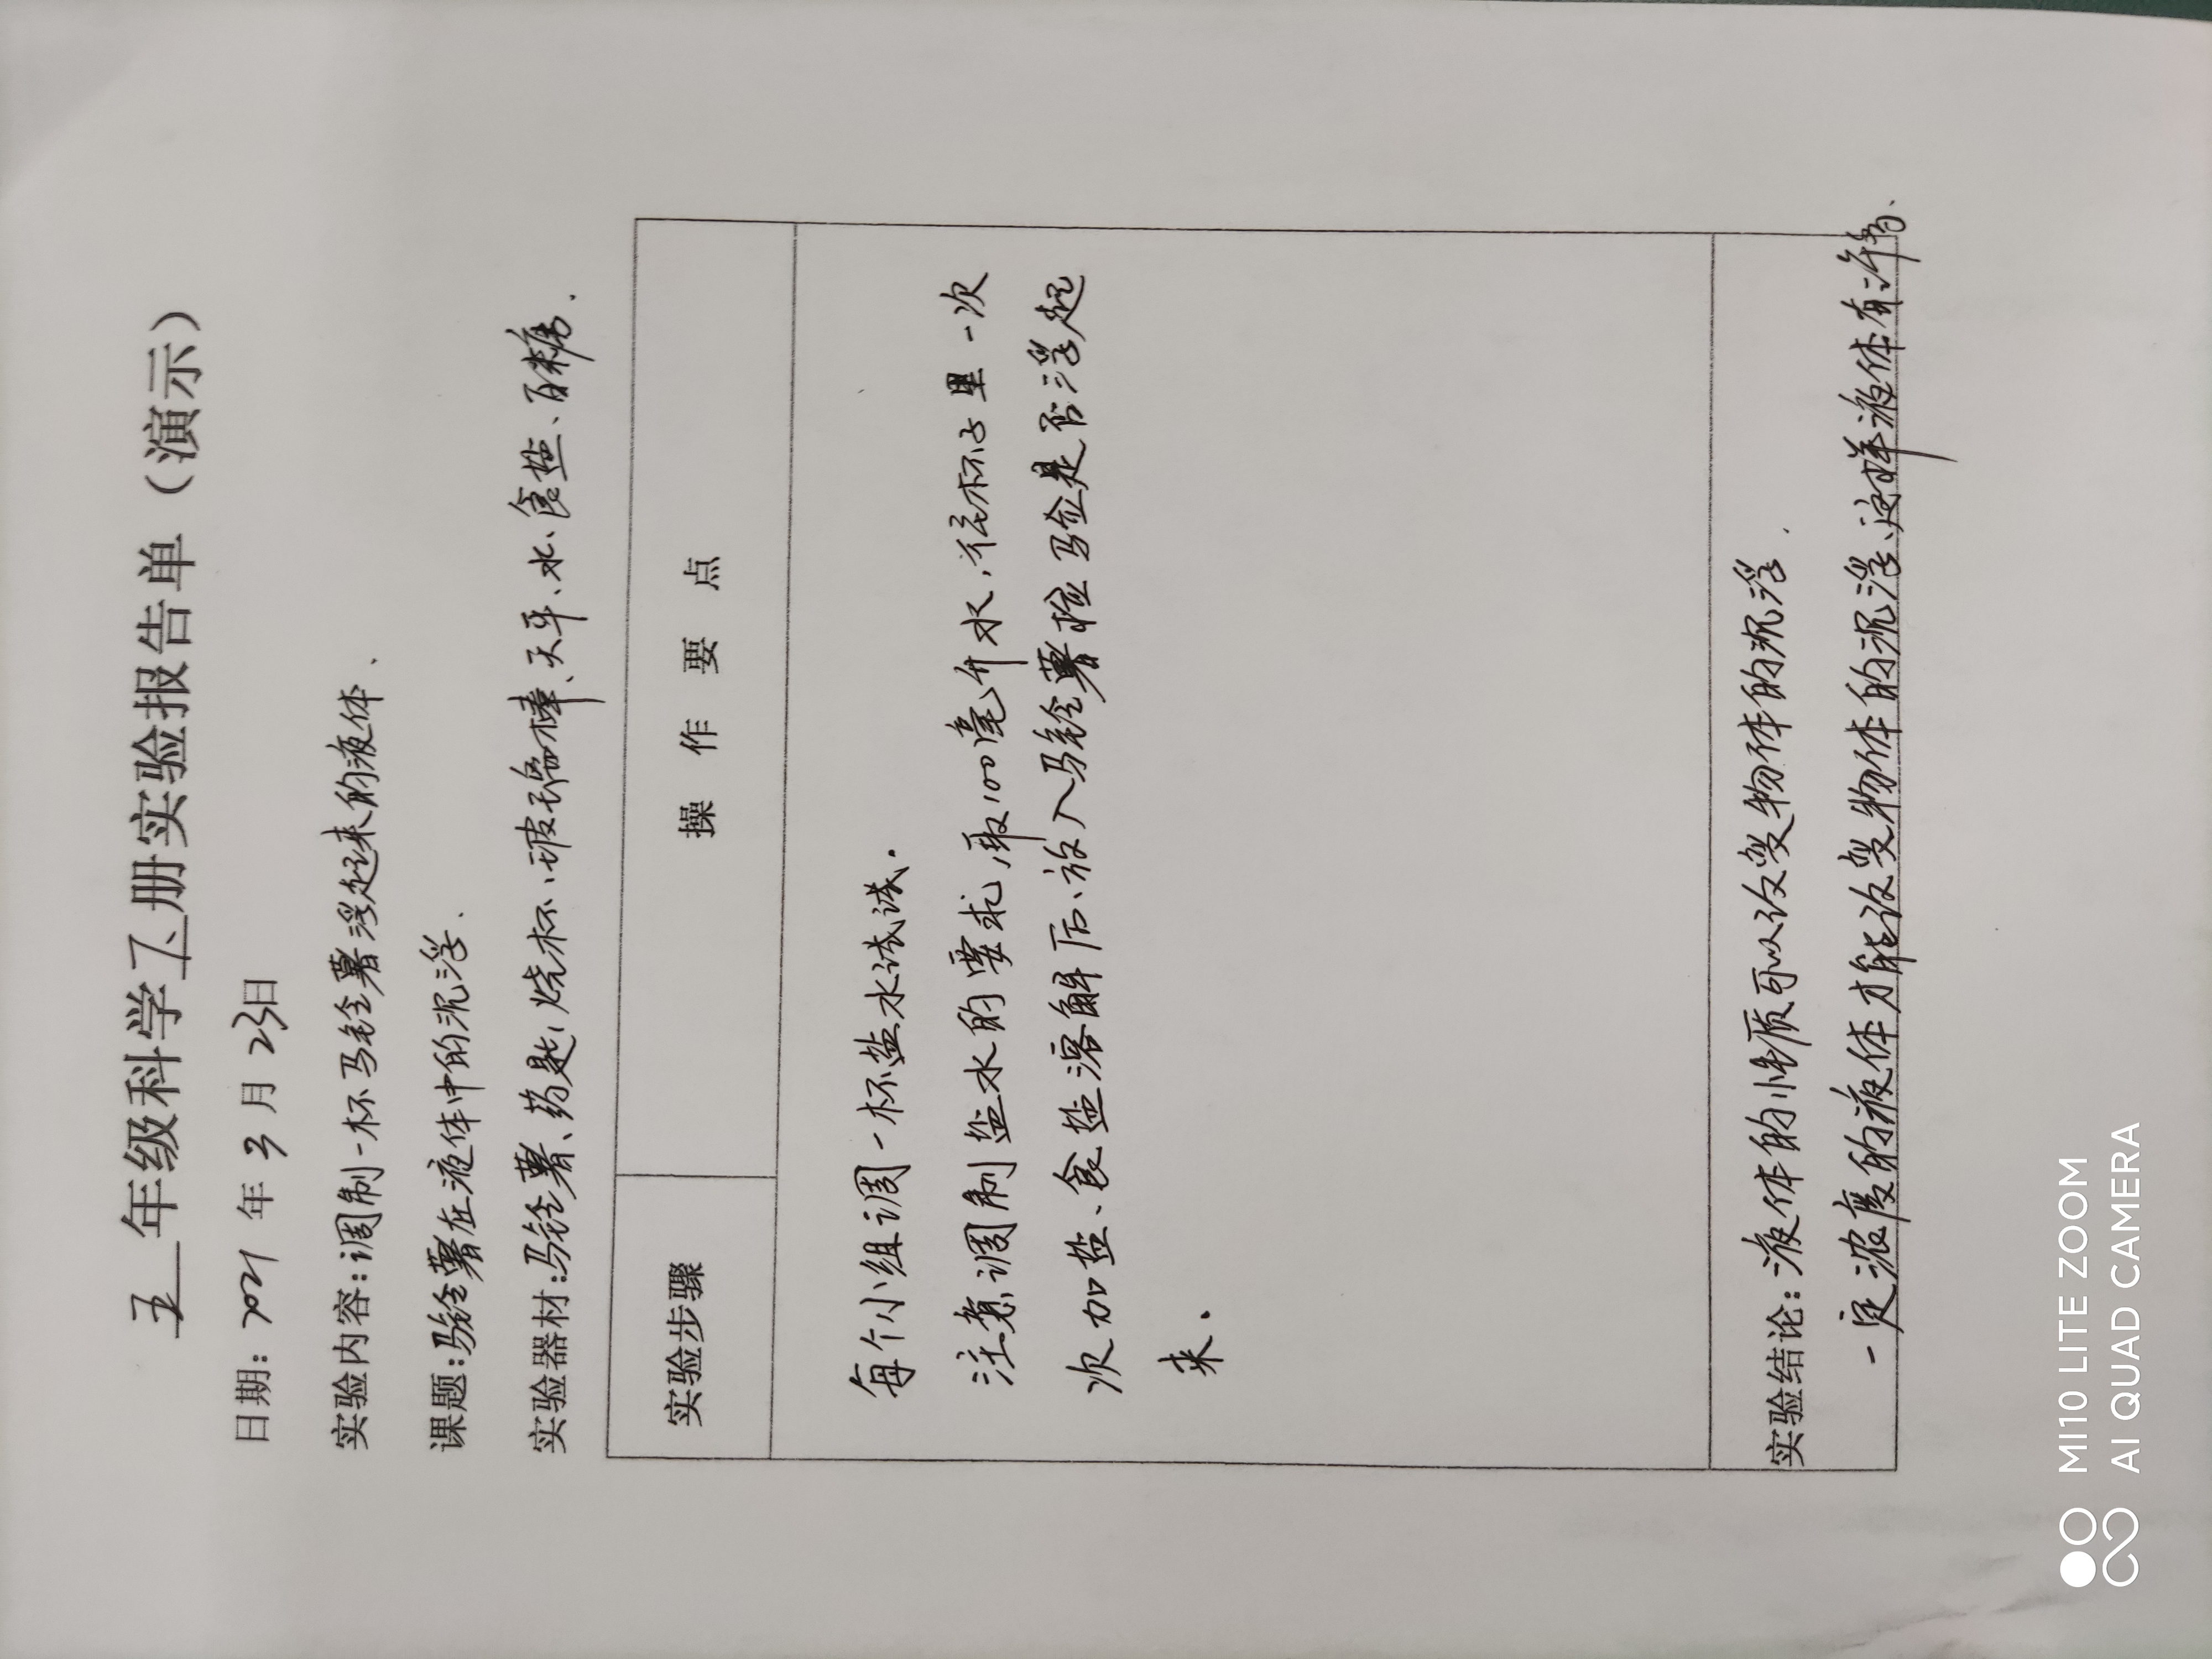 五年级科学下册实验报告单（演示）
日期：2021年3月23日
实验内容：调制一杯马铃薯浮起来的液体、
课题：马铃薯在液体中的沉浮、
实验器材：马铃薯、药匙、烧杯、玻璃棒、天平、水、食盐、白糖.
实验步骤 操作要点
每个小组调一杯盐水试试.
注意调制盐水的要求,取100毫升水,往杯子里一次
次加盐、食盐溶解后、放入马铃薯检验是否浮起
来.
实验结论：液体的性质可以改变物体的沉浮.
一定浓度的液体才能改变物体的沉浮、这样液体有许多、
MI10 LITE ZOOM
AI QUAD CAMERA